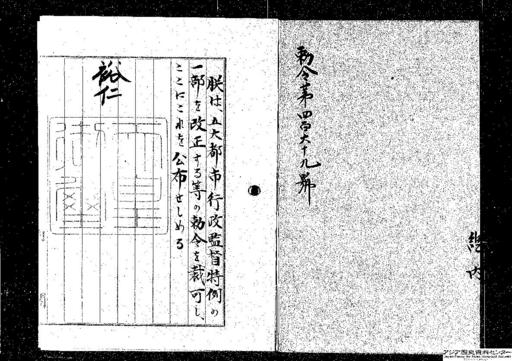 勅令第四百六十九號
總内
朕は、五大都市行政監督特例の
一部を改正する等の勅令を裁可し、
ここにこれを公布せしめる
裕仁
天皇御璽
アジア歴史資料センター